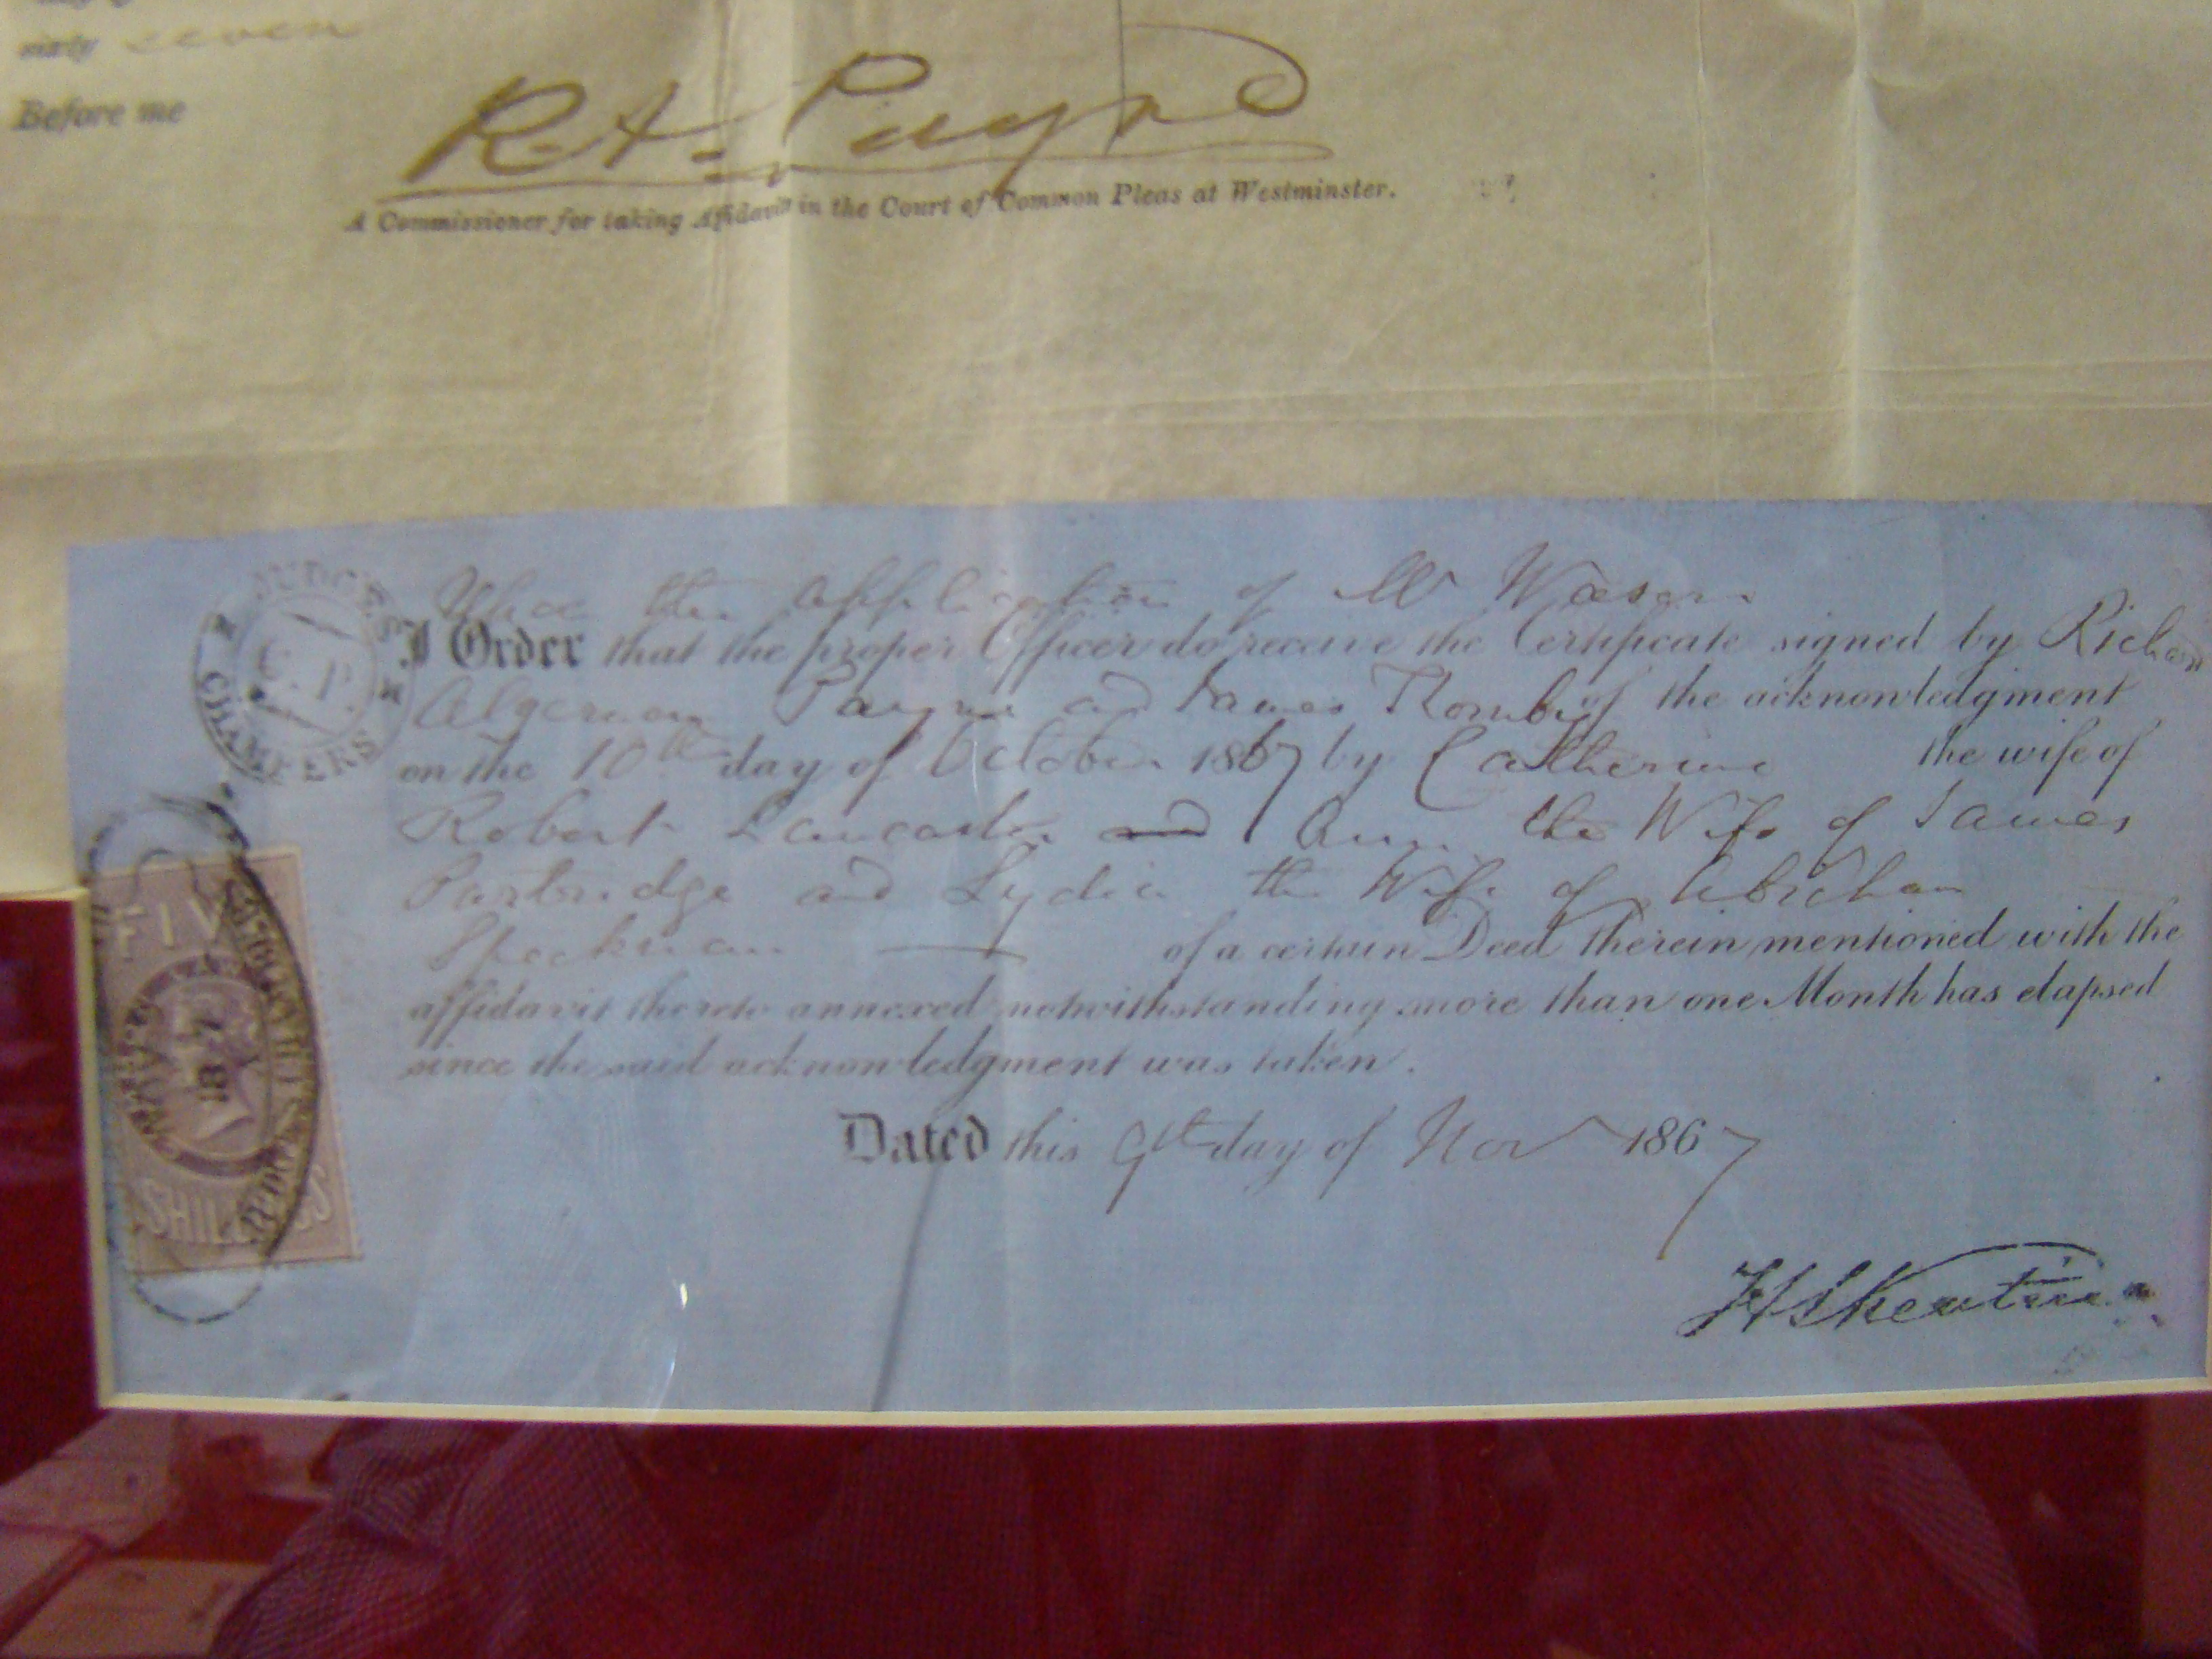 sixty seven
Before me
R. A. Payne
A Commissioner for taking Affidavits in the Court of Common Pleas at Westminster.
Upon the application of Mr Wason
I Order that the proper Officer do receive the Certificate signed by Richard
Algernon Payne and James Hornby of the acknowledgment
on the 10th day of October 1867 by Catherine the wife of
Robert Lancaster and Ann the Wife of James
Partridge and Lydia the Wife of Abraham
Speckman of a certain Deed therein mentioned with the
affidavit thereto annexed notwithstanding more than one Month has elapsed
since the said acknowledgment was taken.
Dated this 9th day of Nov 1867
JUDGES
C.P.
CHAMBERS
FIVE
SHILLINGS